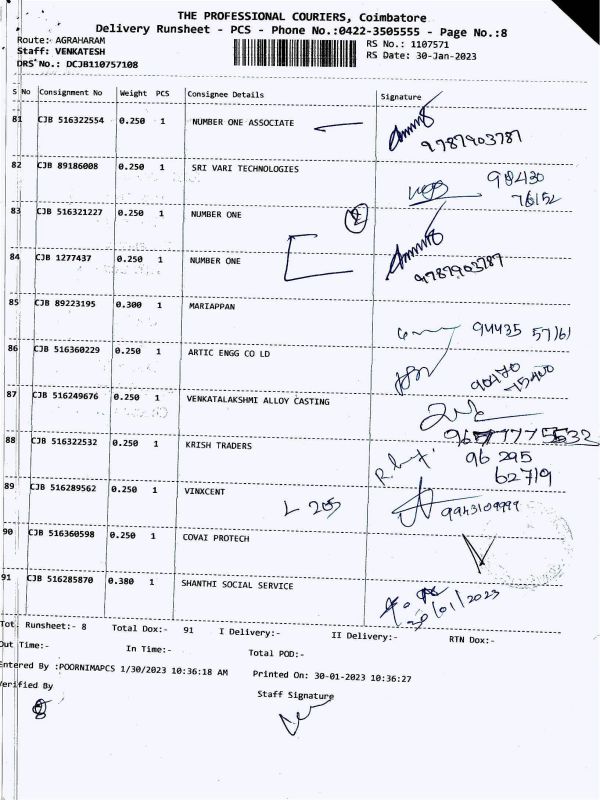 THE PROFESSIONAL COURIERS, Coimbatore
Delivery Runsheet - PCS - Phone No.:0422-3505555 - Page No.:8
Route: AGRAHARAM
Staff: VENKATESH
DRS No.: DCJB110757108
RS No.: 1107571
RS Date: 30-Jan-2023
S No Consignment No Weight PCS Consignee Details Signature
81 CJB 516322554 0.250 1 NUMBER ONE ASSOCIATE
9787903787
82 CJB 89186008 0.250 1 SRI VARI TECHNOLOGIES 98430
76152
83 CJB 516321227 0.250 1 NUMBER ONE 2
84 CJB 1277437 0.250 1 NUMBER ONE 9787903787
85 CJB 89223195 0.300 1 MARIAPPAN
94435 57161
86 CJB 516360229 0.250 1 ARTIC ENGG CO LD
90470
75400
87 CJB 516249676 0.250 1 VENKATALAKSHMI ALLOY CASTING
88 CJB 516322532 0.250 1 KRISH TRADERS 96 295
62719
89 CJB 516289562 0.250 1 VINXCENT L 205 9943109999
90 CJB 516360598 0.250 1 COVAI PROTECH
91 CJB 516285870 0.380 1 SHANTHI SOCIAL SERVICE
30/01/2023
Tot. Runsheet:- 8 Total Dox:- 91 I Delivery:- II Delivery:- RTN Dox:-
Out Time:- In Time:- Total POD:-
Entered By :POORNIMAPCS 1/30/2023 10:36:18 AM Printed On: 30-01-2023 10:36:27
Verified By Staff Signature